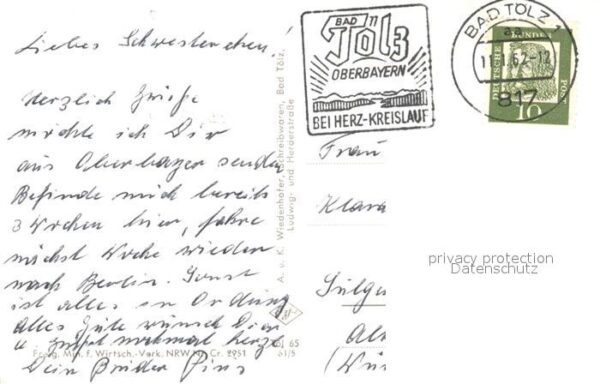 Liebes Schwesterchen!
Herzlich Grüße
möchte ich Dir
aus Oberbayern senden
Befinde mich bereits
3 Wochen hier, fahre
nächst Woche wieder
nach Berlin. Sonst
ist alles in Ordnung
Alles Gute wünsch Dir
u grüßt nochmal herzl
Dein Bruder Pius
BAD
Tölz
OBERBAYERN
BEI HERZ-KREISLAUF
BAD TÖLZ 1
62-12
817
DEUTSCHE BUNDESPOST
10
Frau
Klara
Sulgu
(Wü
A. u. K. Wiedenhofer, Schreibwaren, Bad Tölz,
Ludwig- und Herderstraße
Wirtsch.-Verk. NRW Nr. Cr. 2951
61/5
65
privacy protection
Datenschutz